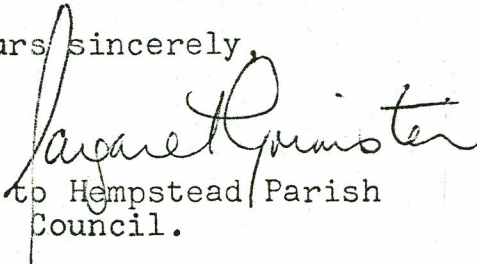 urs sincerely,
Margaret
to Hempstead Parish
Council.